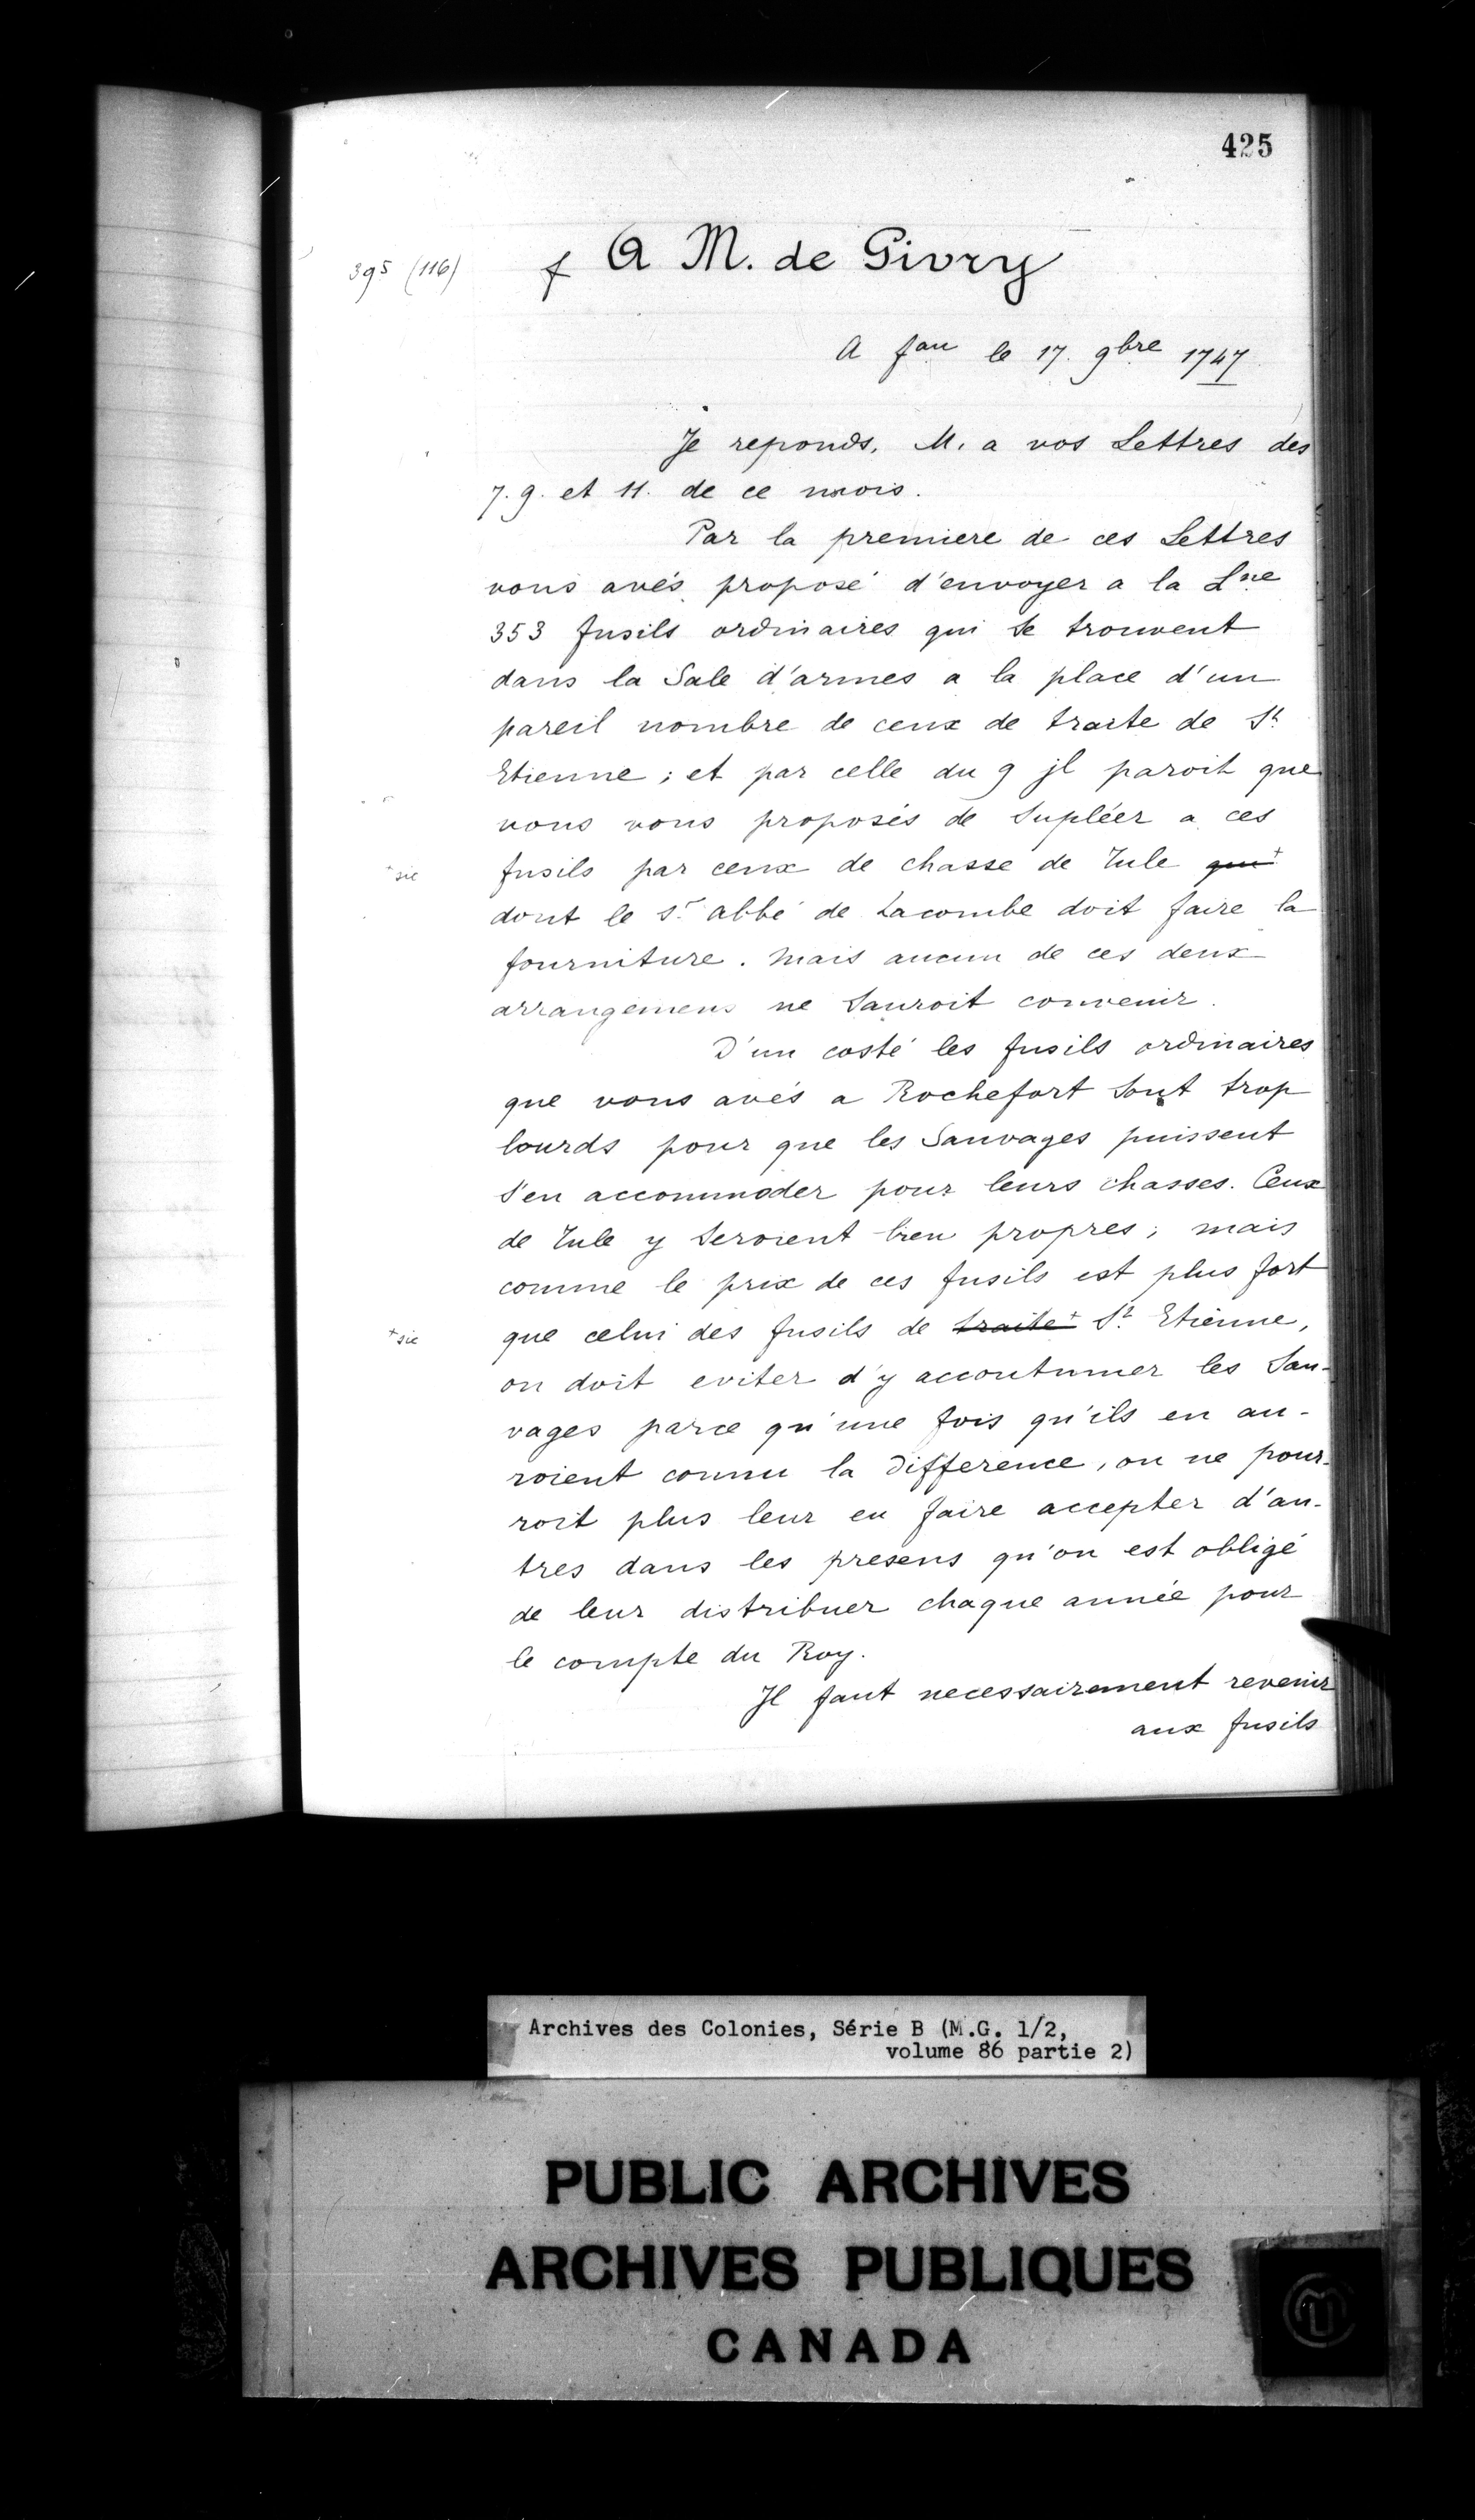 425
395 (116)
f A M. de Givry
A fau le 17. 9bre 1747
Je reponds, M. a vos Lettres des
7. 9. et 11. de ce mois.
Par la premiere de ces Lettres
vous avés proposé d'envoyer a la Lne
353 fusils ordinaires qui se trouvent
dans la Sale d'armes a la place d'un
pareil nombre de ceux de traite de St
Etienne ; et par celle du 9 jl paroit que
vous vous proposés de Supléer a ces
+sic
fusils par ceux de chasse de Tule qui+
dont le Sr abbé de Lacombe doit faire la
fourniture. Mais aucun de ces deux
arrangemens ne Sauroit convenir.
D'un costé les fusils ordinaires
que vous avés a Rochefort Sont trop
lourds pour que les Sauvages puissent
s'en accommoder pour leurs chasses. Ceux
de Tule y Seroient bien propres ; mais
comme le prix de ces fusils est plus fort
+sic
que celui des fusils de traite+ St Etienne,
on doit eviter d'y accoutumer les Sau-
vages parce qu'une fois qu'ils en au-
roient connu la difference, on ne pour-
roit plus leur en faire accepter d'au-
tres dans les presens qu'on est obligé
de leur distribuer chaque année pour
le compte du Roy.
Jl faut necessairement revenir
aux fusils
Archives des Colonies, Série B (M.G. 1/2,
volume 86 partie 2)
PUBLIC ARCHIVES
ARCHIVES PUBLIQUES
CANADA